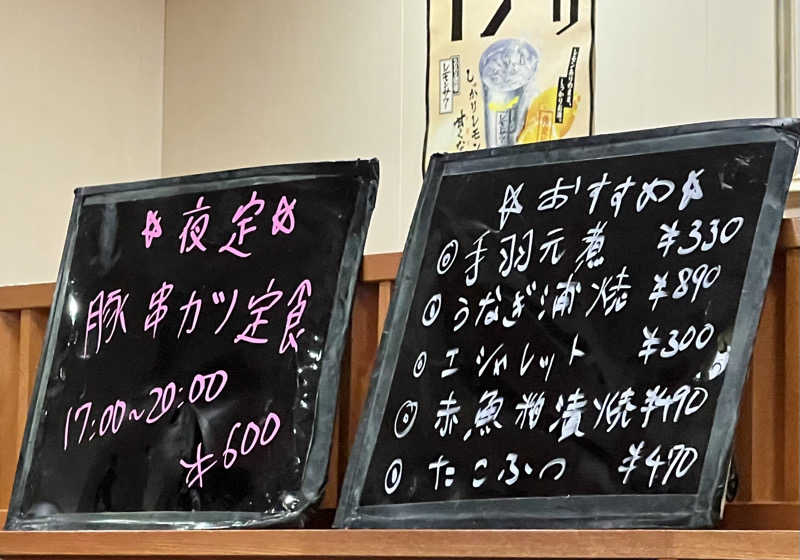 ☆夜定☆
豚串カツ定食
17:00~20:00
¥600
レモンサワー
しっかりレモン
甘くな
☆おすすめ☆
◎手羽元煮 ¥330
◎うなぎ蒲焼 ¥890
◎エシャレット ¥300
◎赤魚粕漬焼 ¥490
◎たこぶつ ¥470